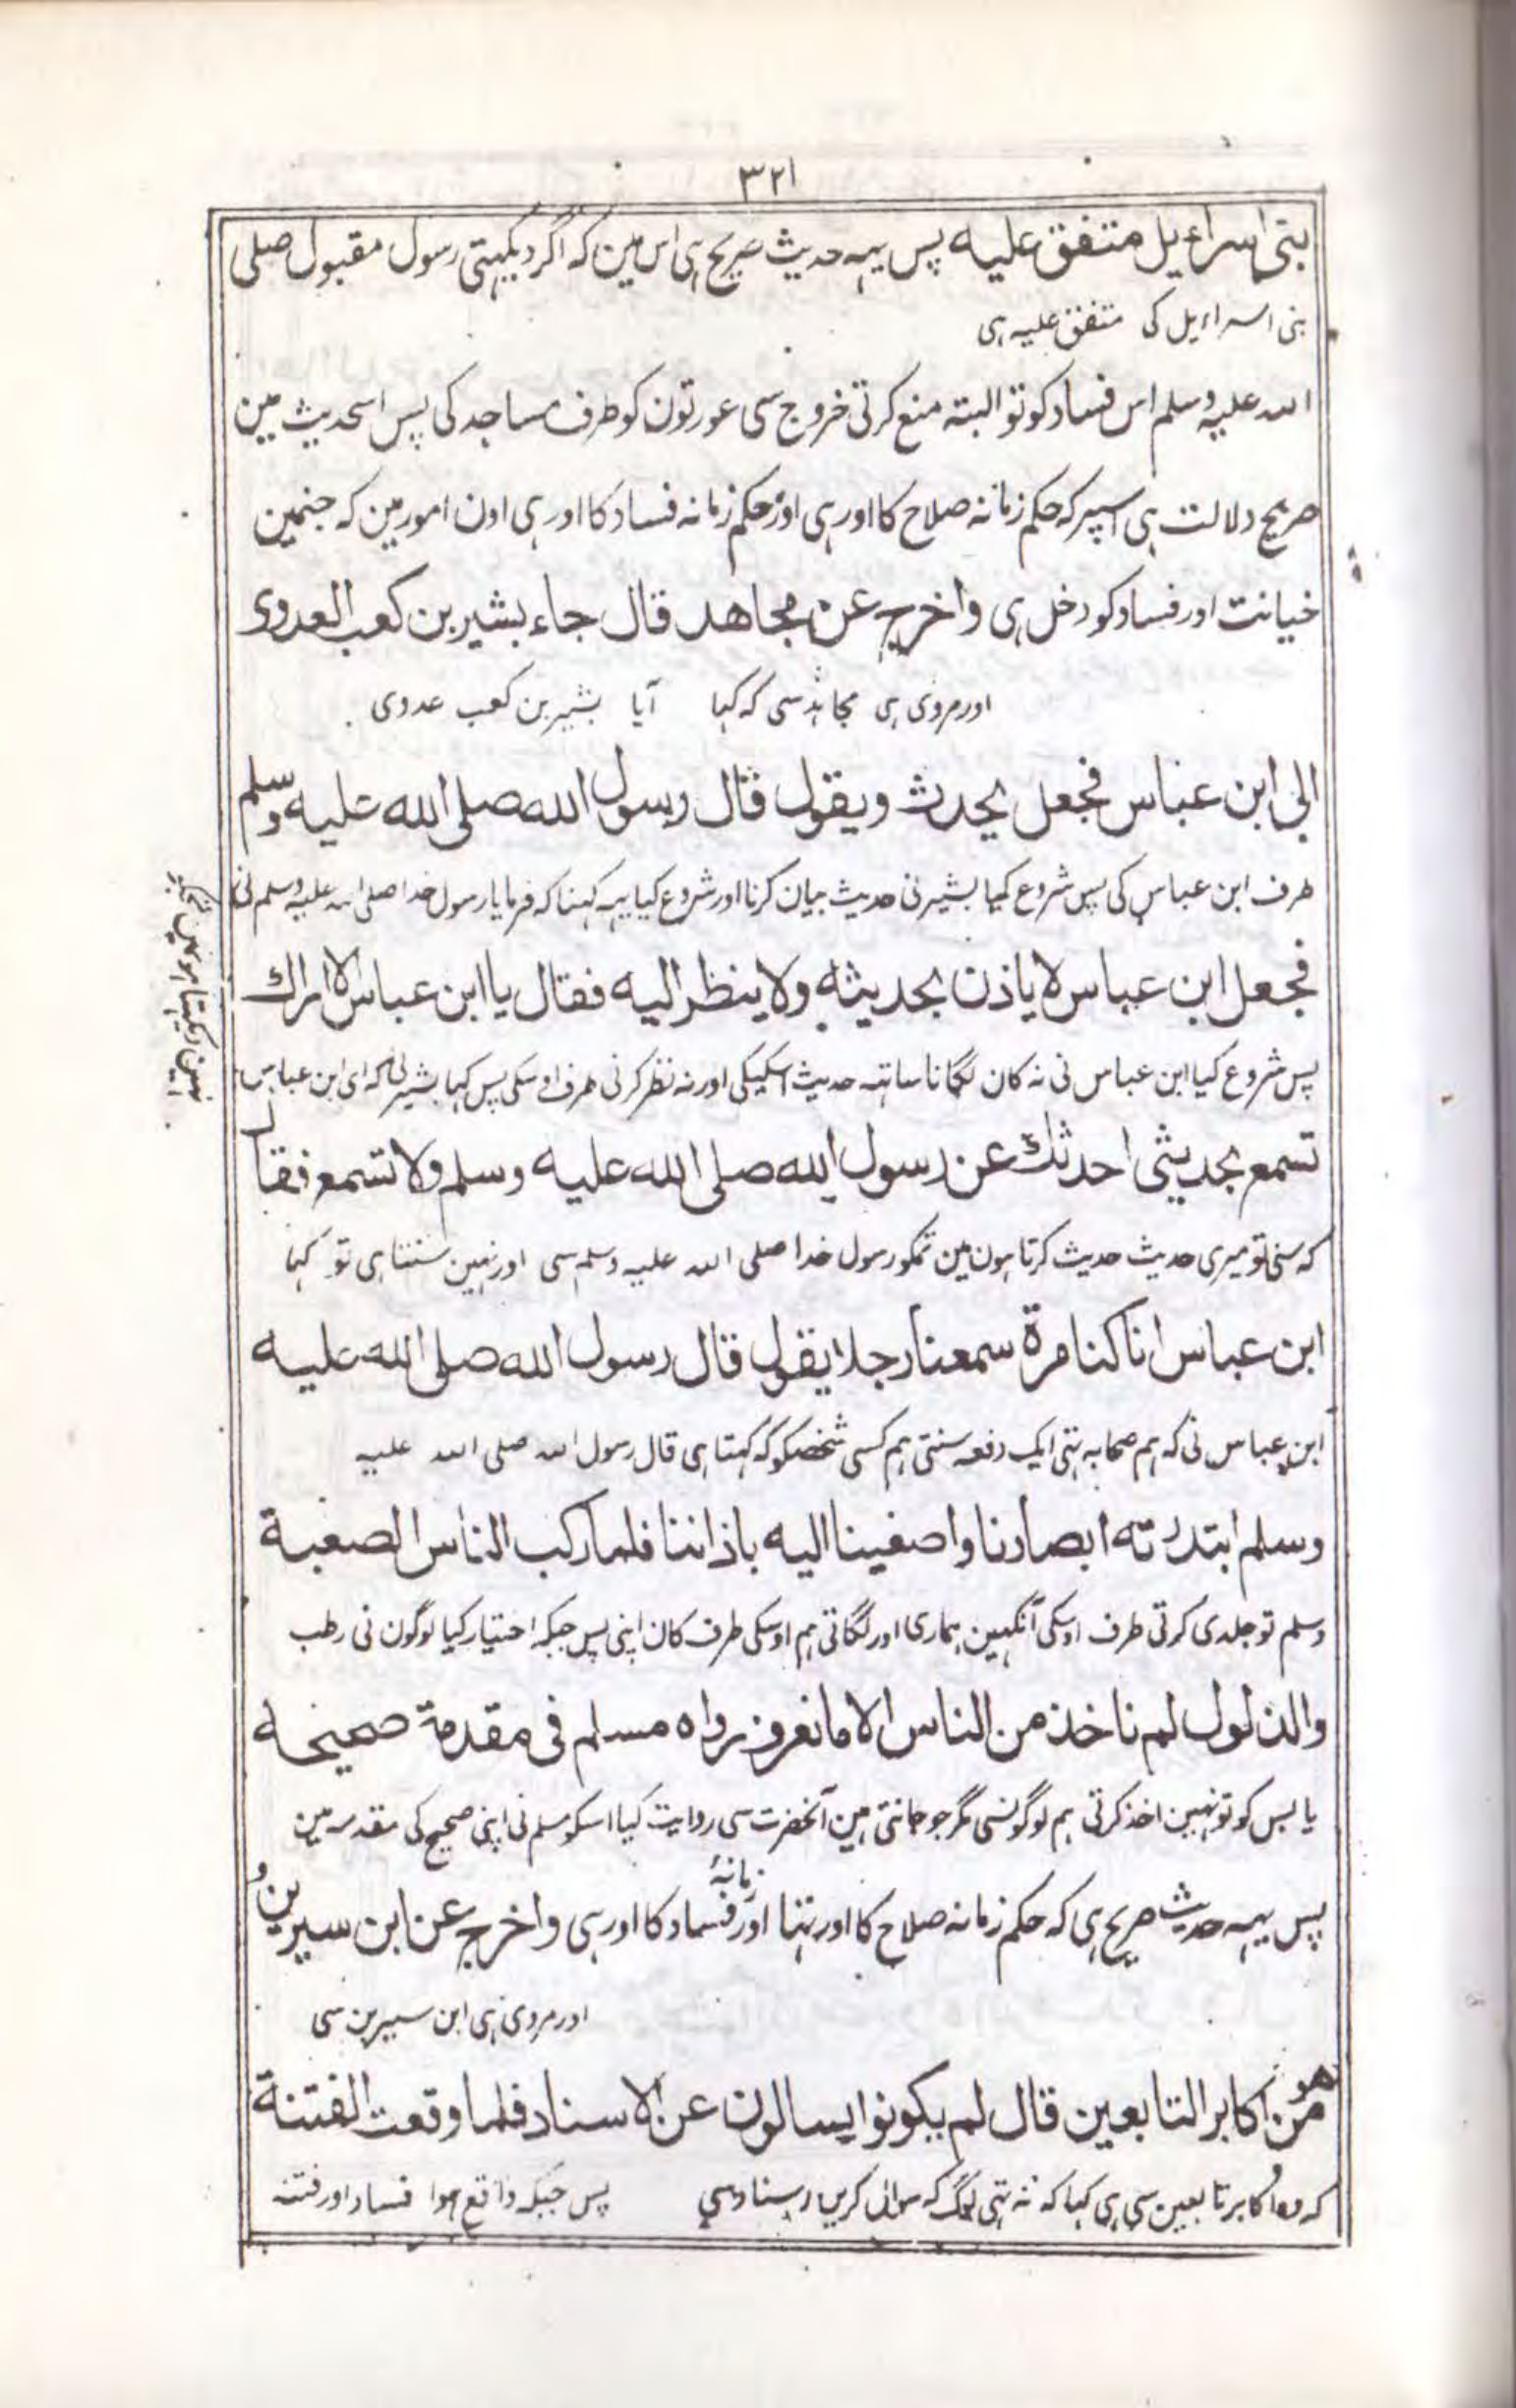 ٣٢١
بنی اسراءیل متفق علیه پس یہہ حدیث صریح ہی اس مین کہ اگر دیکہتی رسول مقبول صلی
بنی اسراءیل کی متفق علیہ ہی
اللہ علیہ وسلم اس فساد کو تو البتہ منع کرتی خروج سی عورتون کو طرف مساجد کی پس اسحدیث مین
صریح دلالت ہی اسپر کہ حکم زمانہ صلاح کا اور ہی اور حکم زمانہ فساد کا اور ہی اون امور مین کہ جنمین
خیانت اور فساد کو دخل ہی واخرج عن مجاهد قال جاء بشير بن كعب العدوى
اور مروی ہی مجاہد سی کہ کہا آیا بشیر بن کعب عدوی
الى ابن عباس فجعل يحدث ويقول قال رسول الله صلى الله عليه وسلم
طرف ابن عباس کی پس شروع کیا بشیر نی حدیث بیان کرنا اور شروع کیا یہہ کہنا کہ فرمایا رسول خدا صلی اللہ علیہ وسلم نی
فجعل ابن عباس لا ياذن بحديثه ولا ينظر اليه فقال يا ابن عباس لا اراك
پس شروع کیا ابن عباس نی نہ کان لگانا ساتہہ حدیث اسکیکی اور نہ نظر کرنی طرف اوسکی پس کہا بشیر نی کہ ای ابن عباس
نہین دیکہتا ہون مین تجہہ
تسمع بحديثى احدثك عن رسول الله صلى الله عليه وسلم ولا تسمع فقال
کہ سنی تو میری حدیث حدیث کرتا ہون مین تمکو رسول خدا صلی اللہ علیہ وسلم سی اور نہین سنتا ہی تو کہا
ابن عباس انا كنا مرة سمعنا رجلا يقول قال رسول الله صلى الله عليه
ابن عباس نی کہ ہم صحابہ تہی ایک دفعہ سنتی ہم کسی شخصکو کہ کہتا ہی قال رسول اللہ صلی اللہ علیہ
وسلم ابتدرته ابصارنا واصغينا اليه باذاننا فلما ركب الناس الصعبة
وسلم تو جلدی کرتی طرف اوسکی آنکہین ہماری اور لگاتی ہم اوسکی طرف کان اپنی پس جبکہ اختیار کیا لوگون نی رطب
والذلول لم ناخذ من الناس الا ما نعرف رواه مسلم فى مقدمة صحيحه
یابس کو تو نہین اخذ کرتی ہم لوگونسی مگر جو جانتی ہین آنحضرت سی روایت کیا اسکو مسلم نی اپنی صحیح کی مقدمہ مین
پس یہہ حدیث صریح ہی کہ حکم زمانہ صلاح کا اور تہا اور زمانہٴ فساد کا اور ہی واخرج عن ابن سيرين و
اور مروی ہی ابن سیرین سی
هو من اكابر التابعين قال لم يكونوا يسالون عن الاسناد فلما وقعت الفتنة
کہ وہ اکابر تابعین سی ہی کہا کہ نہ تہی لوگ کہ سوال کرین اسناد سی پس جبکہ واقع ہوا فساد اور فتنہ